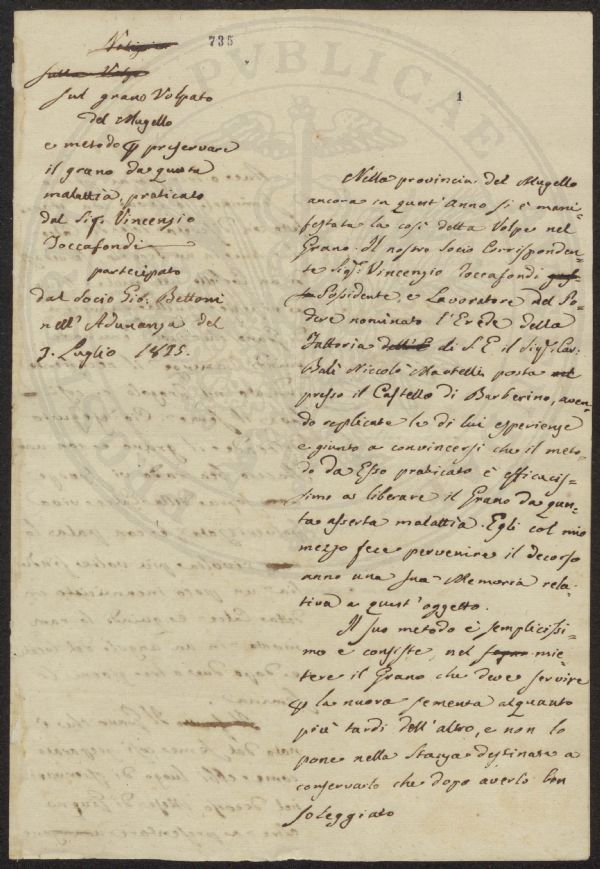 735
1
Notizia
sulla Volpe
sul grano Volpato
del Mugello
e metodo p preservare
il grano da questa
malattia, praticato
dal Sigr. Vincenzio
Toccafondi
partecipato
dal Socio Gio. Bettoni
nell'Adunanza del
Luglio 1815.
Nella provincia del Mugello
ancora in quest'Anno si è mani-
festata la così detta Volpe nel
Grano. Il nostro Socio Corrisponden-
te Sigr. Vincenzio Toccafondi
Possidente, e Lavoratore del Po-
dere nominato l'Erede della
Fattoria dell'E di S. E. il Sigr. Cav.
Balì Niccolò Martelli posta nel
presso il Castello di Barberino, aven-
do replicate le di lui esperienze
è giunto a convincersi che il meto-
do da Esso praticato è efficacis-
simo a liberare il Grano da ques-
ta asserta malattia. Egli col mio
mezzo fece pervenire il decorso
anno una sua Memoria rela-
tiva a quest'oggetto.
Il suo metodo è semplicissi-
mo e consiste, nel mie-
tere il Grano che deve servire
p la nuova sementa alquanto
più tardi dell'altro, e non lo
pone nella Stanza destinata a
conservarlo che dopo averlo ben
soleggiato
PVBLICAE